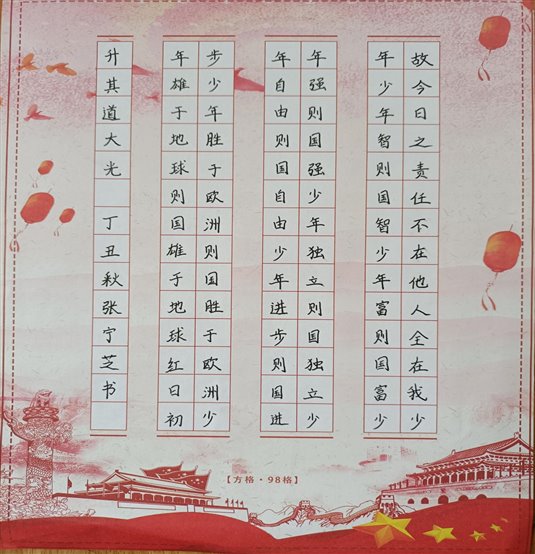 故今日之责任不在他人全在我少
年少年智则国智少年富则国富少
年强则国强少年独立则国独立少
年自由则国自由少年进步则国进
步少年胜于欧洲则国胜于欧洲少
年雄于地球则国雄于地球红日初
升其道大光 丁丑秋张宁芝书
【方格·98格】